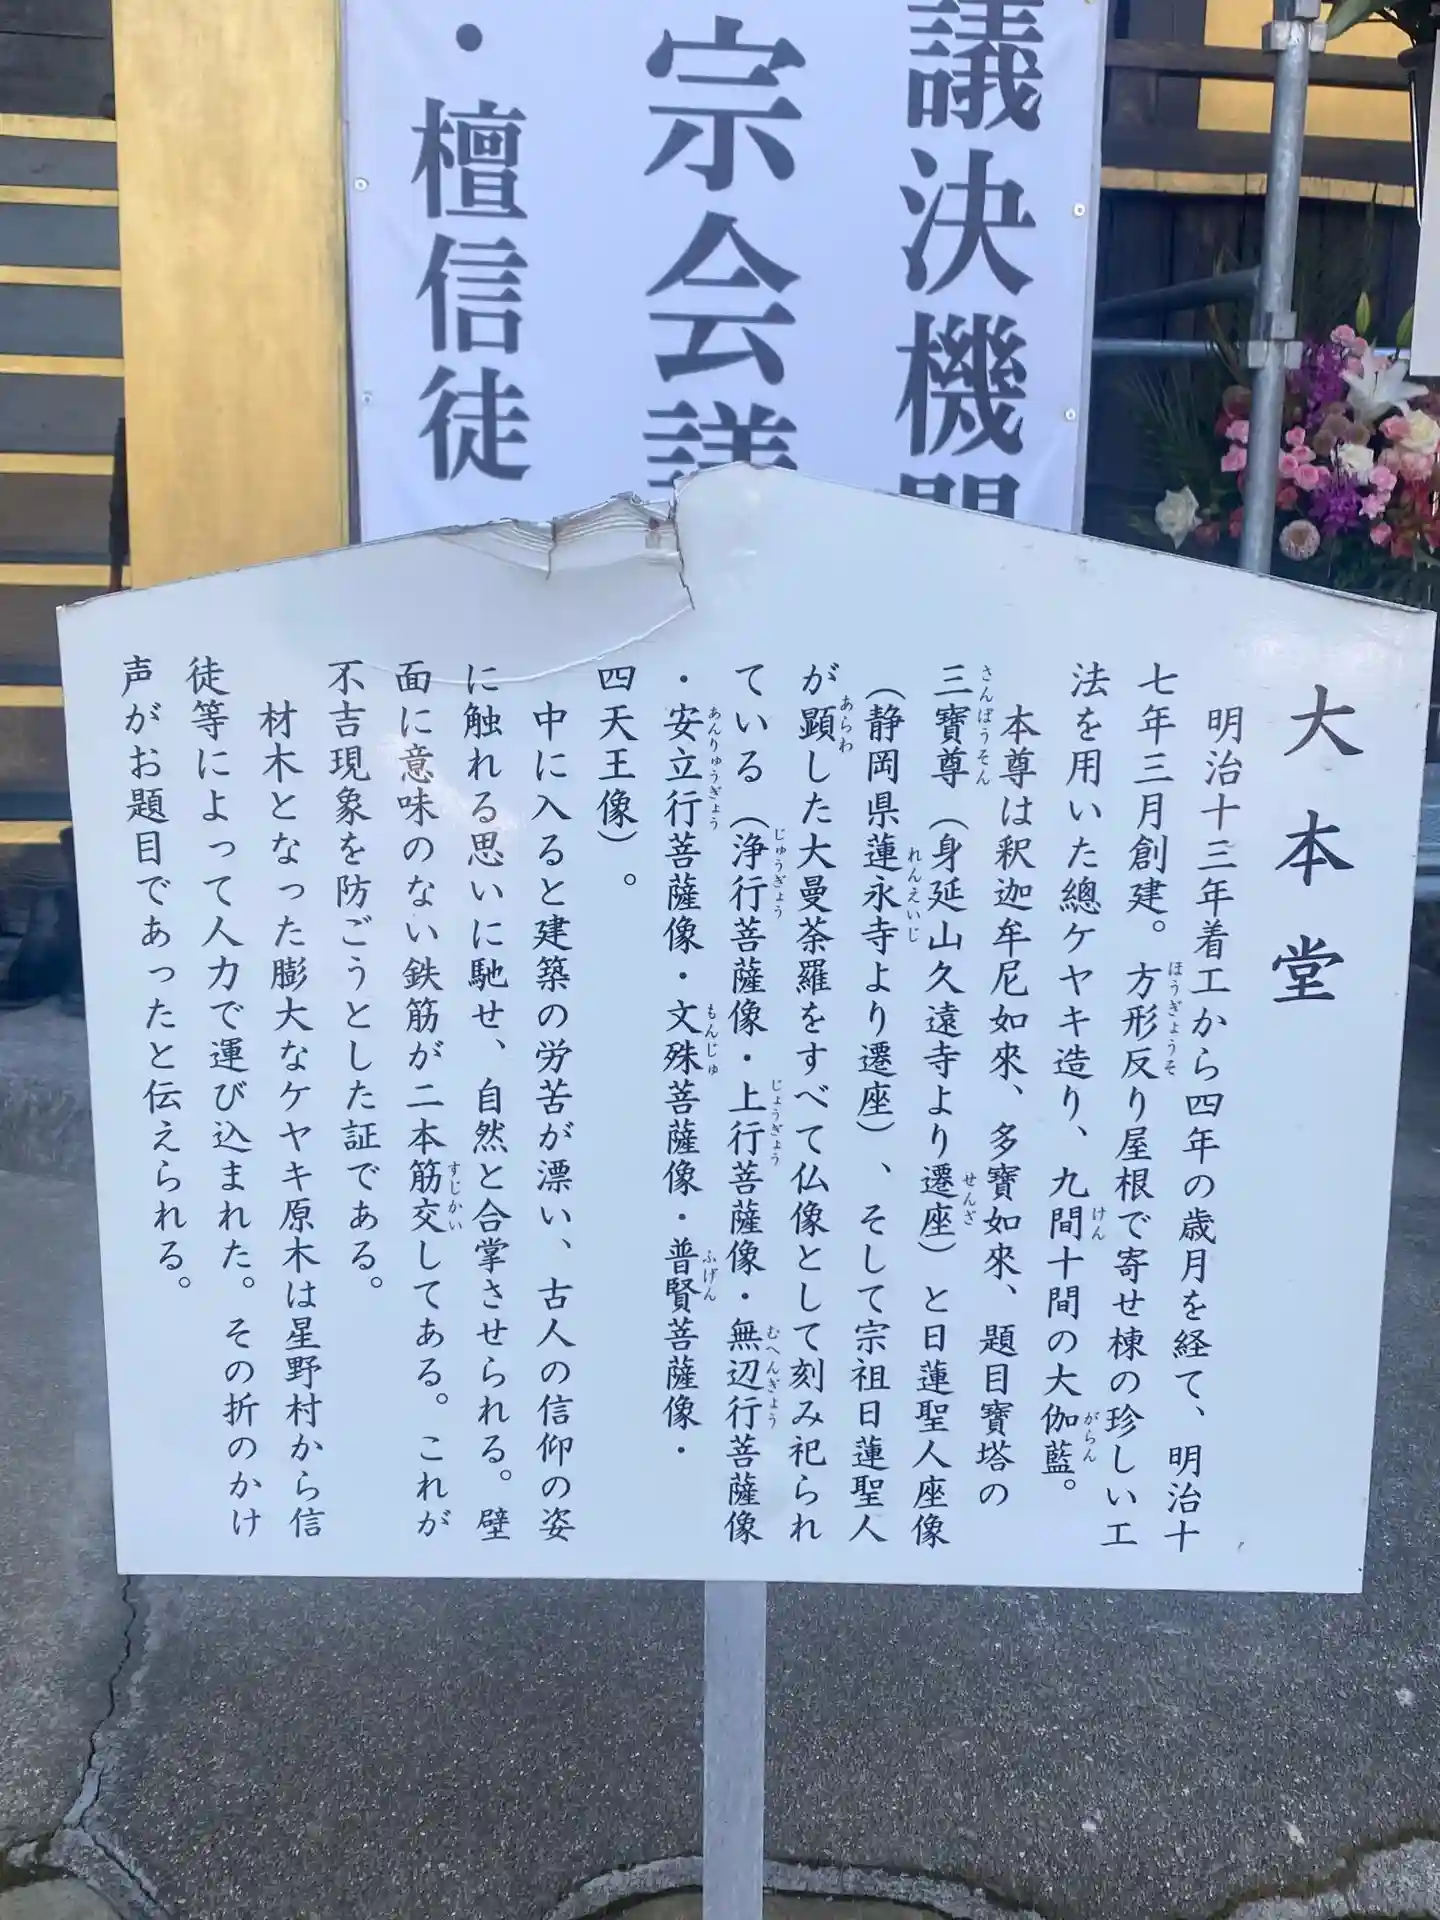 議決機
宗会議
・檀信徒
大本堂
明治十三年着工から四年の歳月を経て、明治十
七年三月創建。方形反り屋根で寄せ棟の珍しい工
ほうぎょうそ
法を用いた總ケヤキ造り、九間十間の大伽藍。
けん
がらん
本尊は釈迦牟尼如來、多寶如來、題目寶塔の
三寶尊（身延山久遠寺より遷座）と日蓮聖人座像
さんぽうそん
せんざ
（静岡県蓮永寺より遷座）、そして宗祖日蓮聖人
れんえいじ
が顕した大曼荼羅をすべて仏像として刻み祀られ
あらわ
ている（浄行菩薩像・上行菩薩像・無辺行菩薩像
じゅうぎょう
じょうぎょう
むへんぎょう
・安立行菩薩像・文殊菩薩像・普賢菩薩像・
あんりゅうぎょう
もんじゅ
ふげん
四天王像）。
中に入ると建築の労苦が漂い、古人の信仰の姿
に触れる思いに馳せ、自然と合掌させられる。壁
面に意味のない鉄筋が二本筋交してある。これが
すじかい
不吉現象を防ごうとした証である。
材木となった膨大なケヤキ原木は星野村から信
徒等によって人力で運び込まれた。その折のかけ
声がお題目であったと伝えられる。